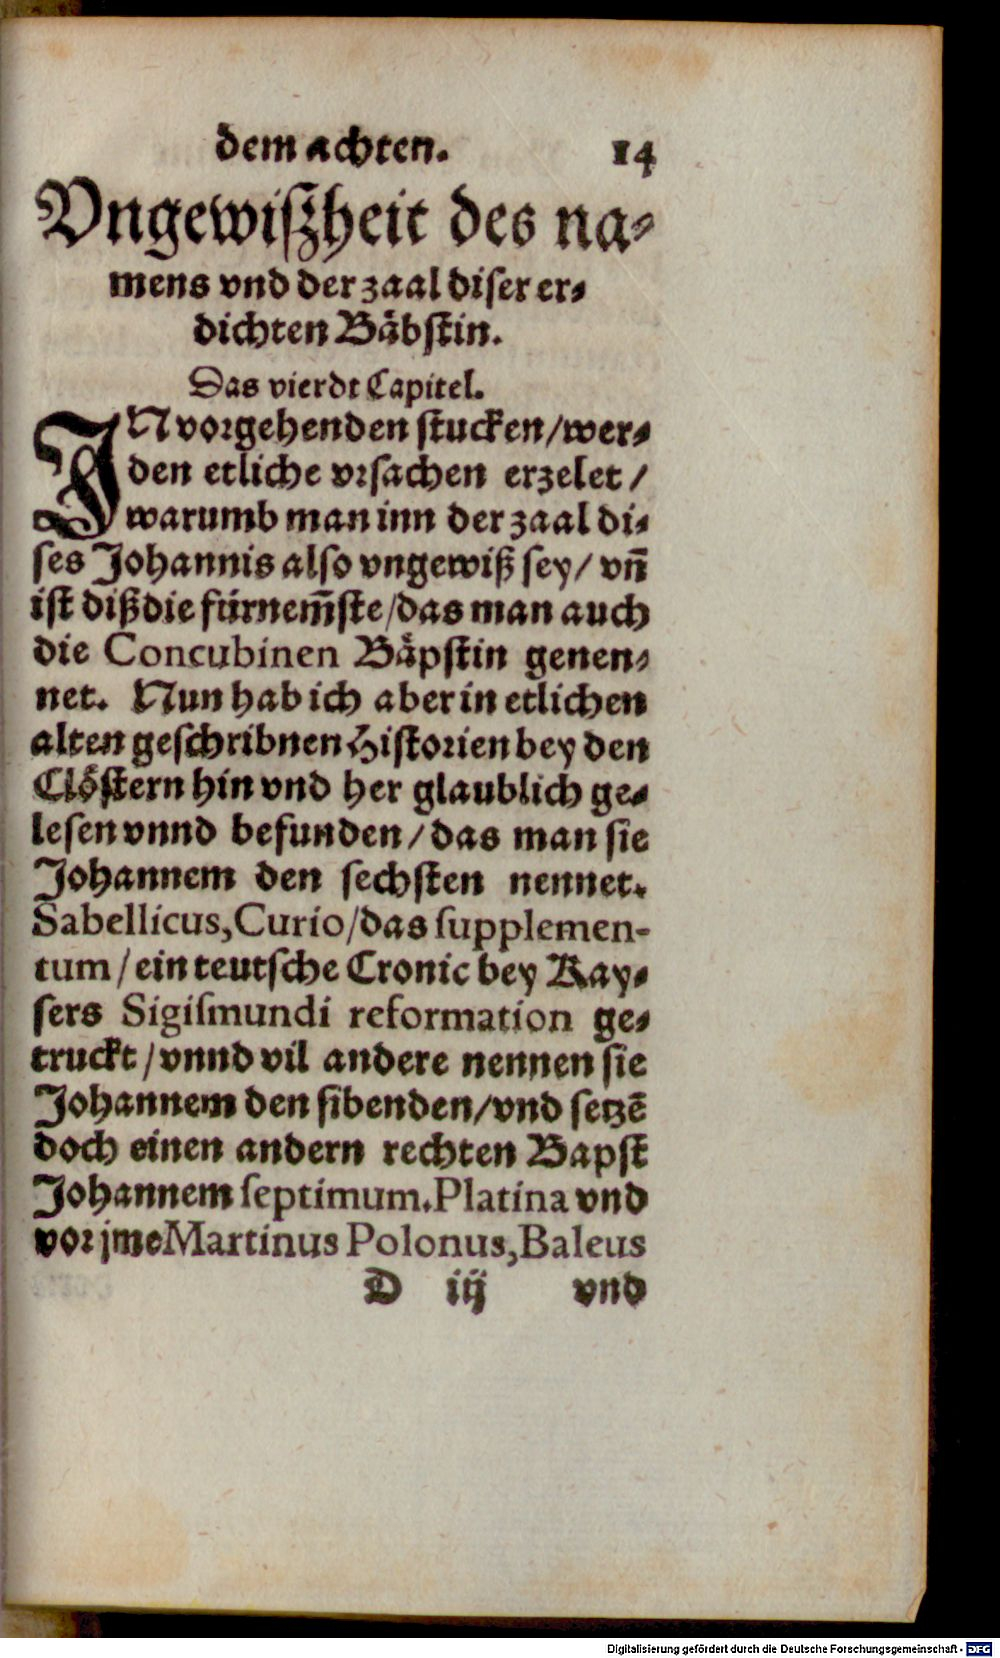 dem achten. 14
Vngewiſzheit des na-
mens vnd der zaal diſer er-
dichten Bäbſtin.
Das vierdt Capitel.
IN vorgehenden ſtucken/wer-
den etliche vrſachen erzelet/
warumb man inn der zaal di-
ſes Johannis alſo vngewiß ſey/ vn̄
iſt diß die fürnem̄ſte/das man auch
die Concubinen Bäpſtin genen-
net. Nun hab ich aber in etlichen
alten geſchribnen Hiſtorien bey den
Clöſtern hin vnd her glaublich ge-
leſen vnnd befunden/das man ſie
Johannem den ſechſten nennet.
Sabellicus,Curio/das ſupplemen-
tum/ein teutſche Cronic bey Kay-
ſers Sigiſmundi reformation ge-
truckt/vnnd vil andere nennen ſie
Johannem den ſibenden/vnd ſetzē
doch einen andern rechten Bapſt
Johannem ſeptimum.Platina vnd
vor jme Martinus Polonus,Baleus
D iij vnd
Digitalisierung gefördert durch die Deutsche Forschungsgemeinschaft - DFG